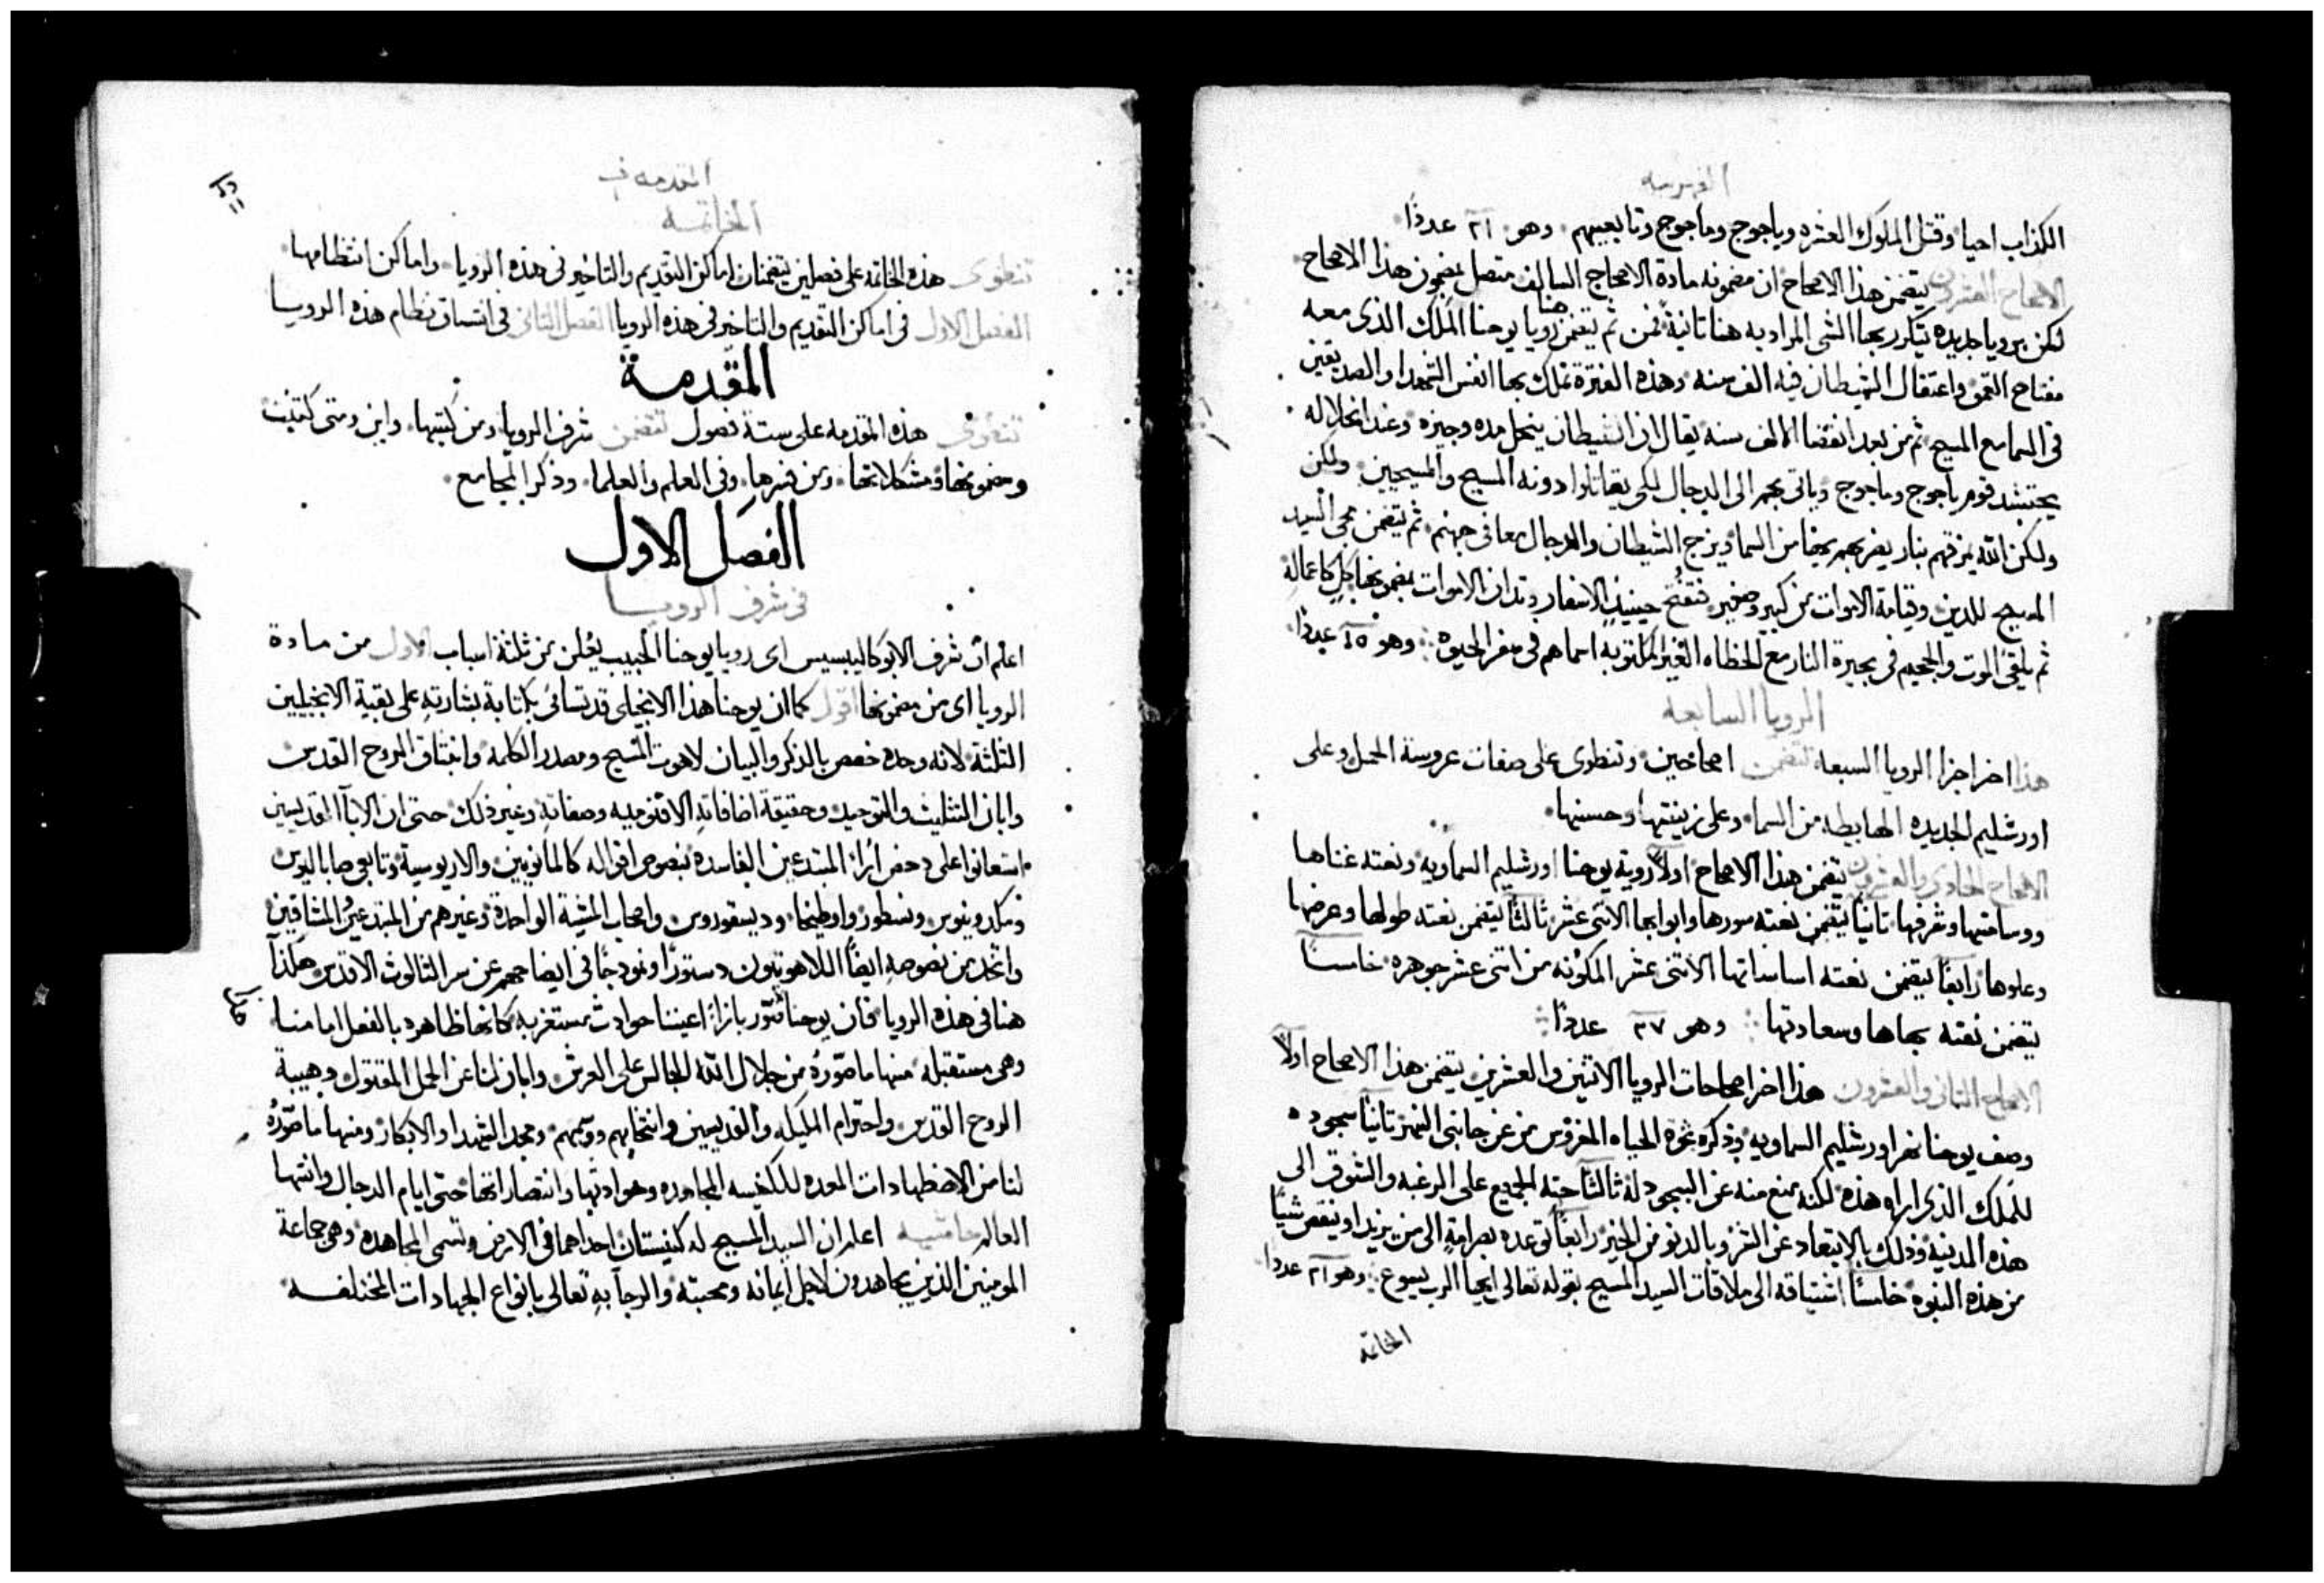 الفهرسه
الكذاب احيا وقتل الملوك العشره وياجوج وماجوج وتابعيهم وهو ٢١ عددًا
الاصحاح العشرون يتضمن هذا الاصحاح ان مضمونه مادة الاصحاح السالف متصل بمضمون هذا الاصحاح
لكن برويا جديده تتكرر بها الشي المراد به هنا ثانية فمن ثم يتضمن هنا رويا يوحنا الملك الذي معه
مفتاح العمق واعتقال الشيطان فيه الف سنه وهذه الفترة تملك بها انفس الشهدا والصديقين
في السما مع المسيح ثم من بعد انقضا الالف سنه يقال ان الشيطان ينحل مده وجيزه وعند انحلاله
يحتشد قوم ياجوج وماجوج وياتي بهم الى الدجال لكي يقاتلوا دونه المسيح والمسيحيين ولكن
ولكن الله يمزقهم بنار يضربهم بها من السما ويزج الشيطان والدجال معا في جهنم ثم يتضمن مجي السيد
المسيح للدين وقيامة الاموات من كبير وصغير فتفتح حينيذٍ الاسفار وتدان الاموات بمضمونها كل كاعماله
ثم يلقى الموت والجحيم في بحيرة النار مع الخطاه الغير المكتوبه اسماهم في سفر الحيوة وهو ١٥ عددًا
الرويا السابعه
هذا اخر اجزا الرويا السبعه تتضمن اصحاحين وتنطوي على صفات عروسة الحمل وعلى
اورشليم الجديده الهابطه من السما وعلى زينتها وحسنها
الاصحاح الحادي والعشرون يتضمن هذا الاصحاح اولاً روية يوحنا اورشليم السماويه ونعته غناها
ووساعتها وشرفها ثانيًا يتضمن نعته سورها وابوابها الاثني عشر ثالثًا يتضمن نعته طولها وعرضها
وعلوها رابعًا يتضمن نعته اساساتها الاثني عشر المكونه من اثني عشر جوهره خامسًا
يتضمن نعته بهاها وسعادتها وهو ٢٧ عددًا
الاصحاح الثاني والعشرون هذا اخر اصحاحات الرويا الاثنين والعشرين يتضمن هذا الاصحاح اولاً
وصف يوحنا نهر اورشليم السماويه وذكره شجرة الحياه المغروس من عن جانبي النهر ثانيًا سجوده
للملك الذي اراه هذه لكنه يمنع منه عن السجود له ثالثًا حثه الجميع على الرغبه والشوق الى
هذه المدينه وذلك بالابتعاد عن الشر وبالدنو من الخير رابعًا توعده بصرامةٍ الى من يزيد او ينقص شيًا
من هذه النبوه خامسًا اشتياقه الى ملاقات السيد المسيح بقوله تعالى ايها الرب يسوع وهو ٢١ عددًا
الخاتمه
المقدمه في
الخاتمــه
تنطوي هذه الخاتمه على فصلين يتضمنان اماكن التقديم والتاخير في هذه الرويا واماكن انتظامها
الفصل الاول في اماكن التقديم والتاخير في هذه الرويا الفصل الثاني في اتساق نظام هذه الرويــا
المقدمــة
تنطوي هذه المقدمه على ستة فصول تتضمن شرف الرويا ومن كتبها واين ومتى كتبت
ومضمونها ومشكلاتها ومن فسرها وفي العلم والعلما وذكر المجامع
الفصل الاول
في شرف الرويــا
اعلم ان شرف الابوكاليبسيس اي رويا يوحنا الحبيب يعلن من ثلثة اسباب الاول من مادة
الرويا اي من مضمونها اقول كما ان يوحنا هذا الانجيلي قد تسامى بكتابة بشارته على بقية الانجيليين
الثلثة لانه وحده خصص بالذكر والبيان لاهوت المسيح ومصدر الكلمه وانبثاق الروح القدس
وابان التثليث والتوحيد وحقيقة اضافاته الاقنوميه وصفاته وغير ذلك حتى ان الابآ القديسين
استعانوا على دحض ارا المبتدعين الفاسده بنصوص اقواله كالمانويين والاريوسية وتابعي صاباليوس
ومكدونيوس ونسطور واوطيخا وديسقوروس واصحاب المشية الواحدة وغيرهم من المبتدعين المشاقين
واتخذ من نصوصه ايضًا اللاهوتيون دستورًا ونموذجًا في ايضاحهم عن سر الثالوث الاقدس هكذا
هنا في هذه الرويا فان يوحنا صور بازاء اعيننا حوادث مستغربه كانها ظاهره بالفعل امامنا
وهي مستقبله منها ما صوره من جلال الله الجالس على العرش وابان لنا عن الحمل المقتول وهيبة
الروح القدس واحترام المليكه والقديسين وانتخابهم ووسمهم ومجد الشهدا والابكار ومنها ما صوره
لنا من الاضطهادات المعده للكنيسه المجاهده وحوادثها وانتصاراتها حتى ايام الدجال وانتها
العالم حاشيه اعلم ان السيد المسيح له كنيستان احداهما في الارض وتسمى المجاهده وهي جماعة
المومنين الذين يجاهدون لاجل ايمانه ومحبته والرجآ به تعالى بانواع الجهادات المختلفــه